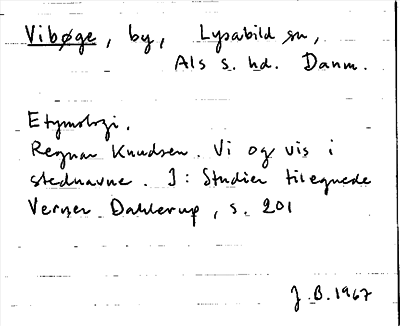 Vibøge, by, Lysabild sn,
Als s. hd. Danm.
Etymologi.
Regnar Knudsen. Vi og vis i
stednavne. I: Studier tilegnede
Verner Dahlerup, s. 201
J.B. 1967